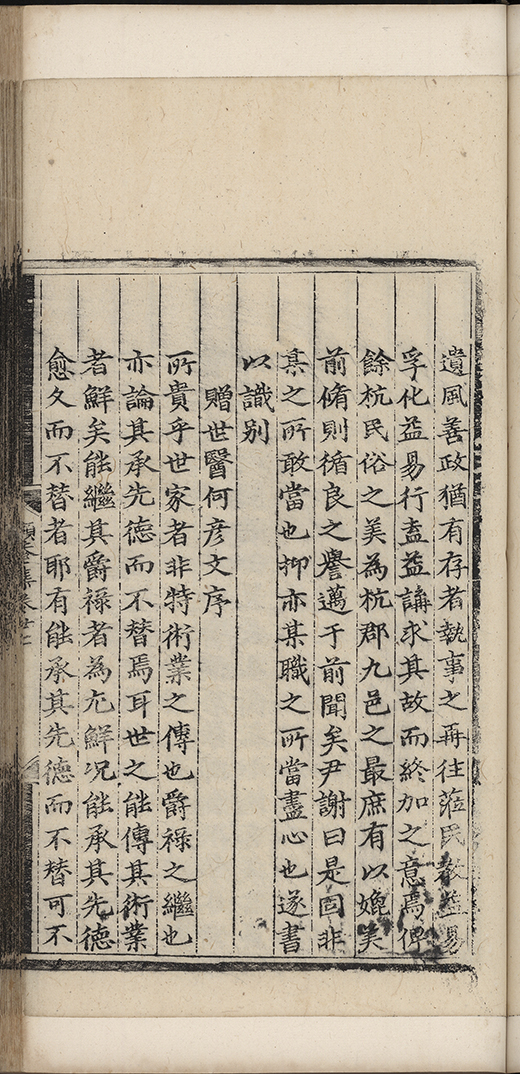 遺風善政猶有存者執事之再往蒞民教益易
孚化益易行盍益講求其故而終加之意焉俾
餘杭民俗之美為杭郡九邑之最庶有以媲美
前脩則循良之譽邁于前聞矣尹謝曰是固非
某之所敢當也抑亦某職之所當盡心也遂書
以識别
贈世醫何彦文序
所貴乎世家者非特術業之傳也爵祿之繼也
亦論其承先德而不替焉耳世之能傳其術業
者鮮矣能繼其爵祿者為尢鮮况能承其先德
愈久而不替者耶有能承其先德而不替可不
集卷廿七